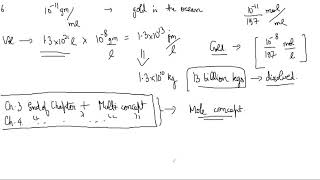 6. 10⁻¹¹ gm/ml → gold in the ocean 10⁻¹¹/197 mol/ml
Vol → 1.3×10²¹ l × 10⁻⁸ gm/l = 1.3×10¹³ gm
Gold → [10⁻⁸/197 mol/l]
1.3×10¹⁰ kg 13 billion kgs → dissolved.
Ch. 3 End of Chapter + Multi concept
Ch. 4 " " " " "
→ Mole concept